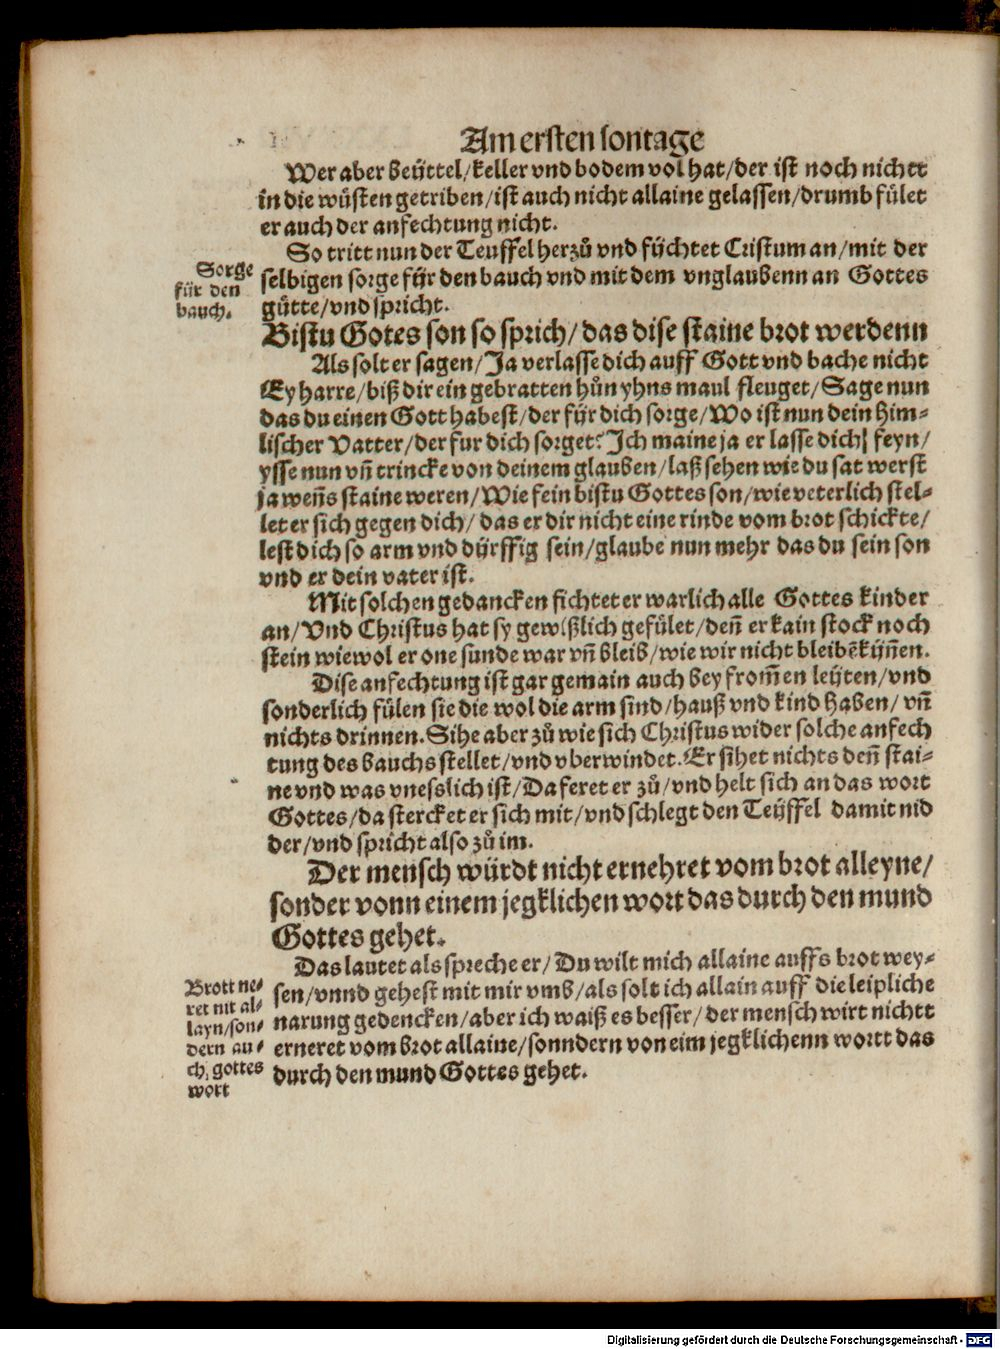 Am ersten sontage
Wer aber beüttel/keller vnd bodem vol hat/der ist noch nichtt
in die wüsten getriben/ist auch nicht allaine gelassen/drumb fület
er auch der anfechtung nicht.
So tritt nun der Teuffel herzů vnd fÿchtet Cristum an/mit der
Sorge
für den
bauch.
selbigen sorge fÿr den bauch vnd mit dem vnglaubenn an Gottes
gůtte/vnd spricht.
Bistu Gotes son so sprich/das dise staine brot werdenn
Als solt er sagen/Ja verlasse dich auff Gott vnd bache nicht
Ey harre/biß dir ein gebratten hůn yhns maul fleuget/Sage nun
das du einen Gott habest/der fÿr dich sorge/Wo ist nun dein him-
lischer Vatter/der fur dich sorget? Jch maine ja er lasse dich feyn/
ysse nun vn̄ trincke von deinem glauben/laß sehen wie du sat werst
ja wen̄s staine weren/Wie fein bistu Gottes son/wie veterlich stel-
let er sich gegen dich/das er dir nicht eine rinde vom brot schickte/
lest dich so arm vnd dÿrffig sein/glaube nun mehr das du sein son
vnd er dein vater ist.
Mit solchen gedancken fichtet er warlich alle Gottes kinder
an/Vnd Christus hat sy gewißlich gefület/den̄ er kain stock noch
stein wiewol er one sunde war vn̄ bleib/wie wir nicht bleibē kÿn̄en.
Dise anfechtung ist gar gemain auch bey from̄en leÿten/vnd
sonderlich fülen sie die wol die arm sind/hauß vnd kind haben/vn̄
nichts drinnen. Sihe aber zů wie sich Christus wider solche anfech
tung des bauchs stellet/vnd vberwindet. Er sihet nichts den̄ stai-
ne vnd was vnesslich ist/Da feret er zů/vnd helt sich an das wort
Gottes/da stercket er sich mit/vnd schlegt den Teÿffel damit nid
der/vnd spricht also zů im.
Der mensch würdt nicht ernehret vom brot alleyne/
sonder vonn einem jegklichen wort das durch den mund
Gottes gehet.
Das lautet als spreche er/Du wilt mich allaine auffs brot wey-
Brott ne-
ret nit al-
layn/son-
dern au-
ch gottes
wort
sen/vnnd gehest mit mir vmb/als solt ich allain auff die leipliche
narung gedencken/aber ich waiß es besser/der mensch wirt nichtt
erneret vom brot allaine/sonndern von eim jegklichenn wortt das
durch den mund Gottes gehet.
Digitalisierung gefördert durch die Deutsche Forschungsgemeinschaft - DFG